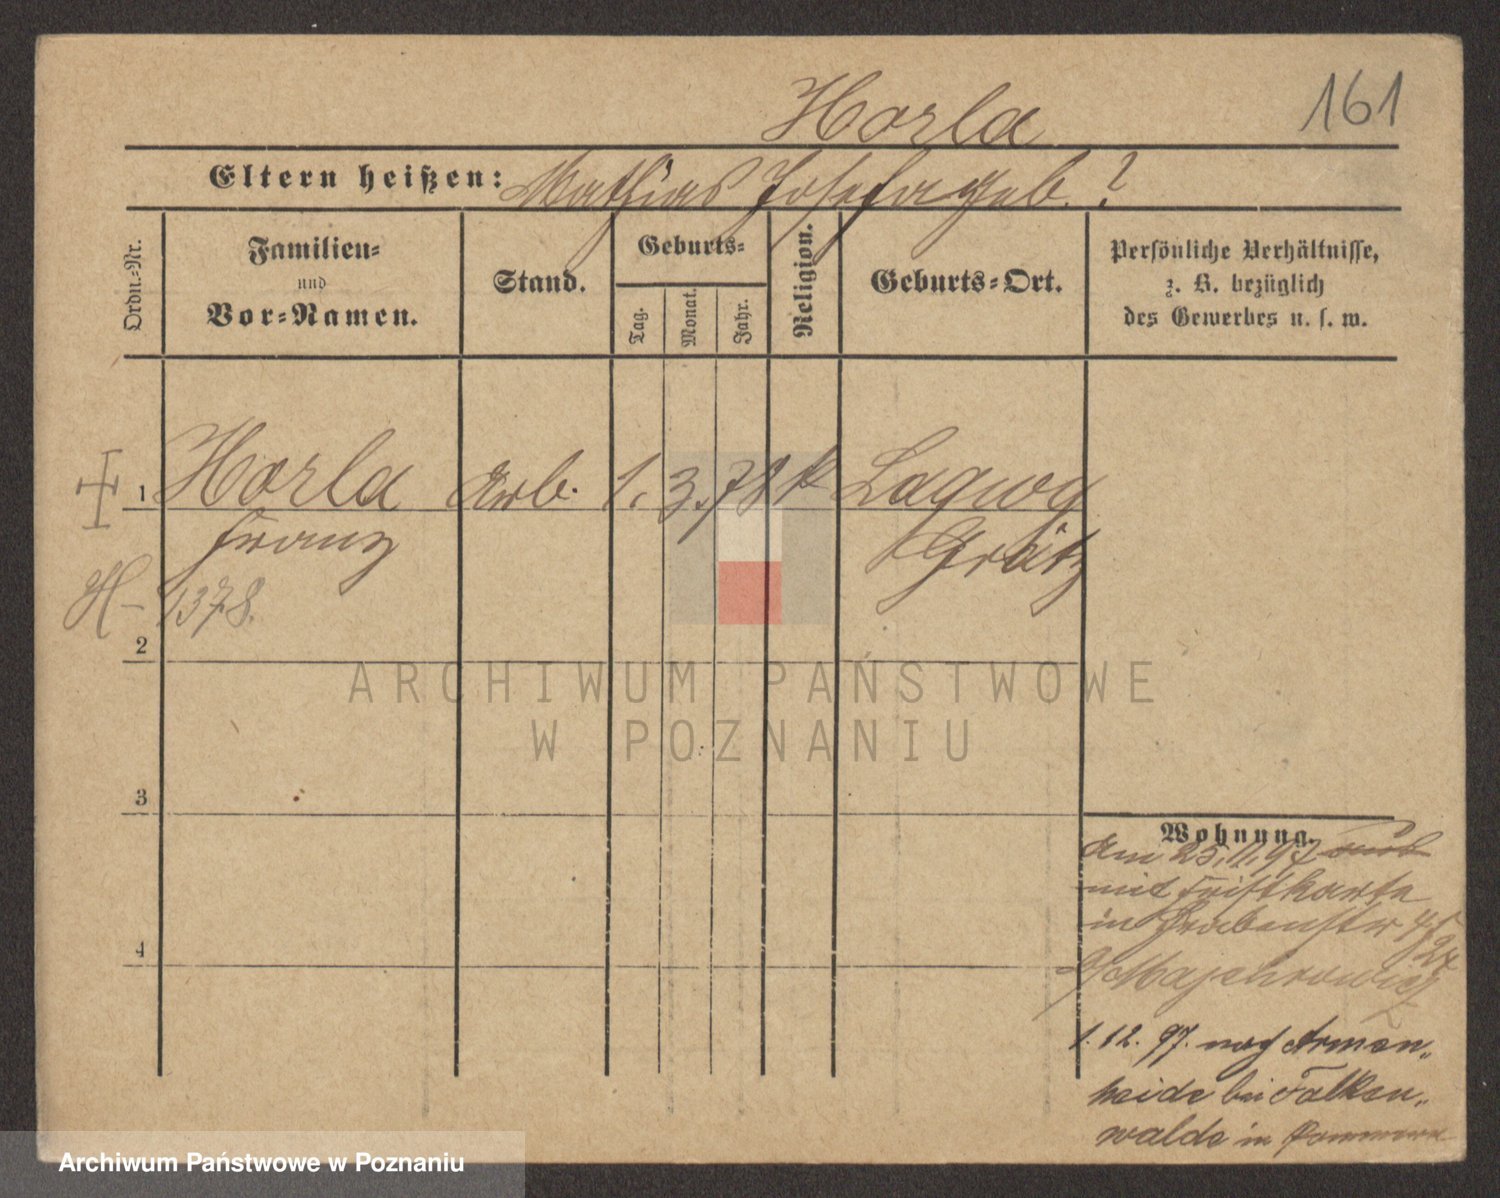 161
Horla
Eltern heißen: Mathias Josefa geb. ?
Ordn.-Nr.
Familien-
und
Vor-Namen.
Stand.
Geburts-
Tag.
Monat.
Jahr.
Religion.
Geburts-Ort.
Persönliche Verhältnisse,
z. B. bezüglich
des Gewerbes u. s. w.
1 Horla Arb. 1. 3. 78 k Lagwy
Franz Grätz
H - 1378.
2
3
4
Wohnung.
Am 25.11.97
mit
in Grabenstr
1.12.97. nach Armen„
heide bei Falken„
walde in Pommern
ARCHIWUM PAŃSTWOWE
W POZNANIU
Archiwum Państwowe w Poznaniu